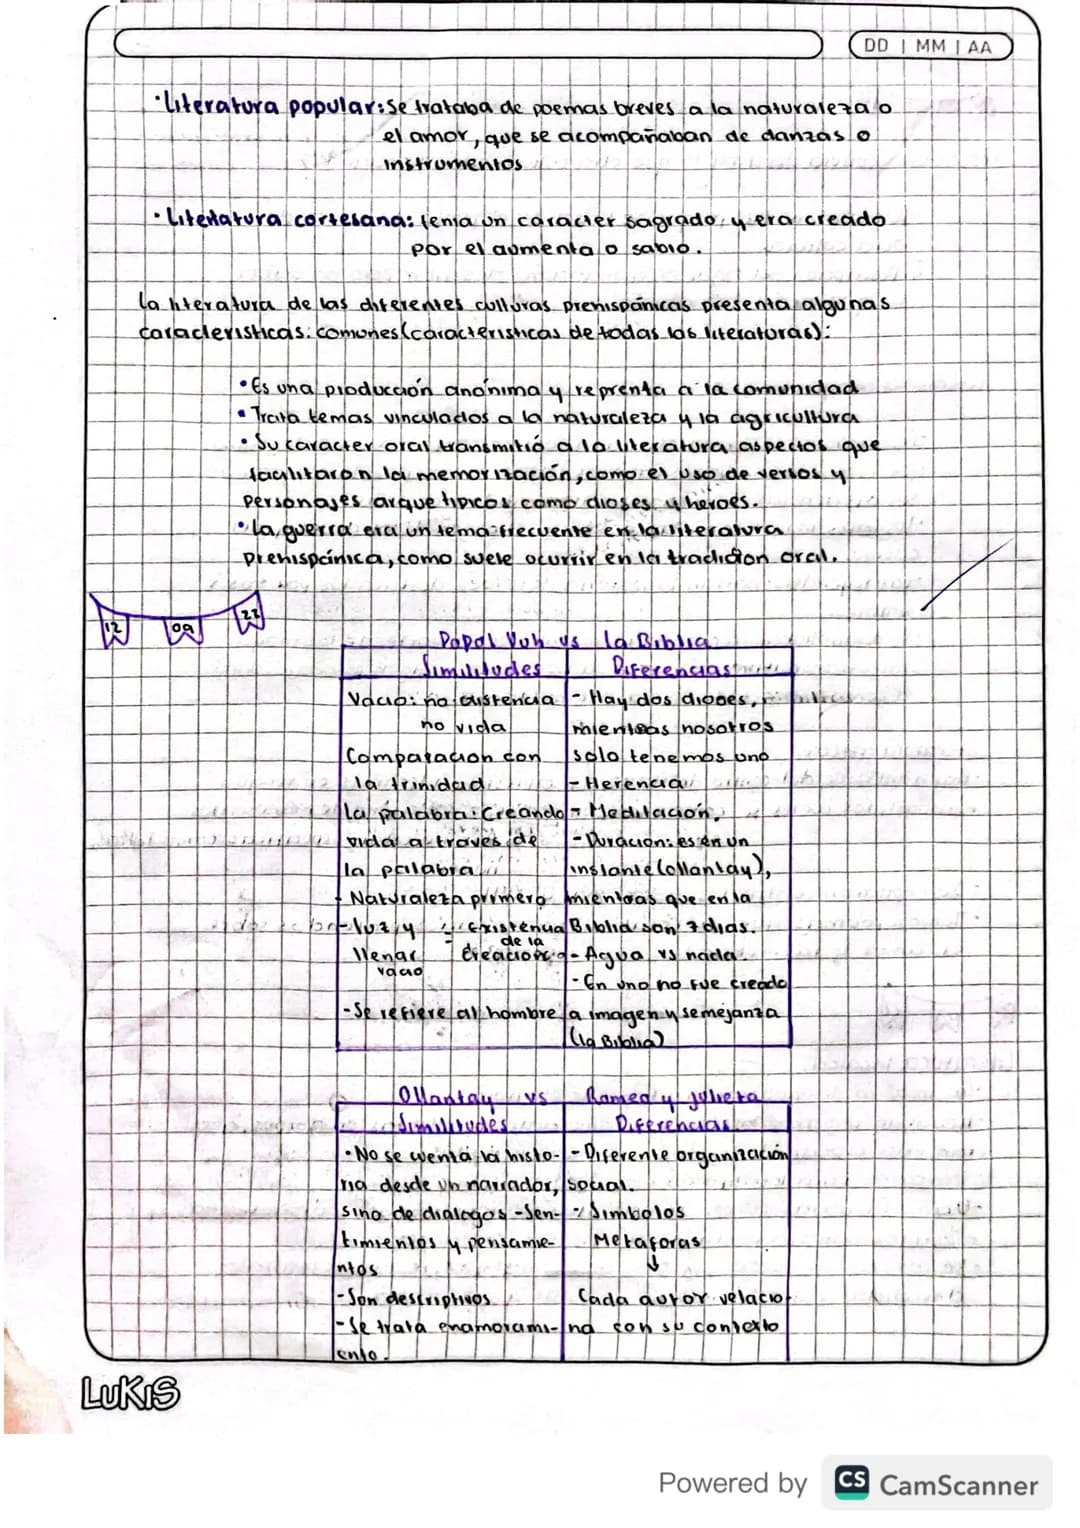 DD | MM | AA
·Literatura popular: Se trataba de poemas breves a la naturaleza o
el amor, que se acompañaban de danzas o
instrumentos
·Literatura cortesana: tenia un caracter sagrado y era creado
por el aumenta o sabio.
la literatura de las diferentes culturas prehispánicas presenta algunas
caracteristicas comunes (caracteristicas de todas las literaturas):
•Es una producción anónima y reprenta a la comunidad
•Trata temas vinculados a la naturaleza y la agricultura
•Su caracter oral transmitió a la literatura aspectos que
facilitaron la memorización, como el uso de versos y
personajes arquetipicos como dioses y héroes.
•La guerra era un tema frecuente en la literatura
prehispánica, como suele ocurrir en la tradicion oral.
12 09 22
Popol Vuh vs la Biblia
Similitudes Diferencias
Vacio: no existencia - Hay dos dioses,
no vida mientras nosotros
Comparacion con solo tenemos uno
la trinidad - Herencia
la palabra: Creando - Meditación.
vida a traves de - Duracion: es en un
la palabra instante (ollantay),
Naturaleza primero mientras que en la
-luz y = existencia Biblia son 7 dias.
de la
llenar creacion - Agua vs nada
vacio
- En uno no fue creado
-Se refiere al hombre a imagen y semejanza
(la Biblia)
Ollantay vs Romeo y Julieta
Similitudes Diferencias
•No se cuenta la histo- - Diferente organización
ria desde un narrador, social.
sino de dialogos -Sen- - Simbolos
timientos y pensamie- Metaforas
ntos ↓
-Son descriptivos Cada autor relacio-
-Se trata enamorami- na con su contexto
ento.
LUKIS
Powered by CS CamScanner